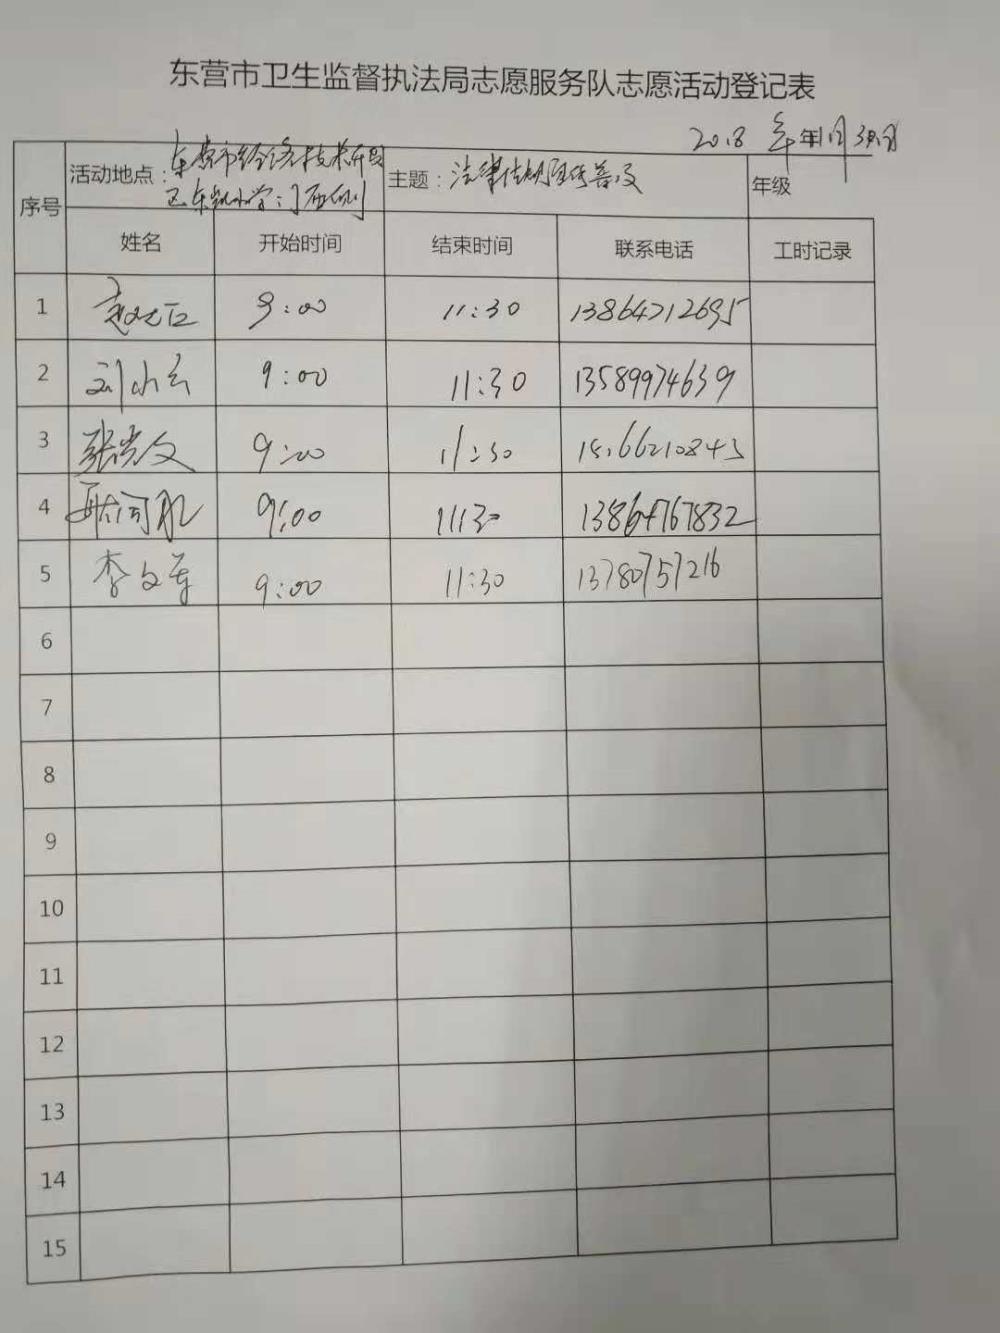 东营市卫生监督执法局志愿服务队志愿活动登记表
2018 年 年1月30日
活动地点：东营市经济技术开发
区东凯小学门西侧
主题：法律法规宣传普及
年级
序号 姓名 开始时间 结束时间 联系电话 工时记录
1 9:00 11:30
2 刘小云 9:00 11:30 13589974639
3 张光文 9:00 11:30
4 9:00 11:30 13864767832
5 李文军 9:00 11:30 13780757216
6
7
8
9
10
11
12
13
14
15